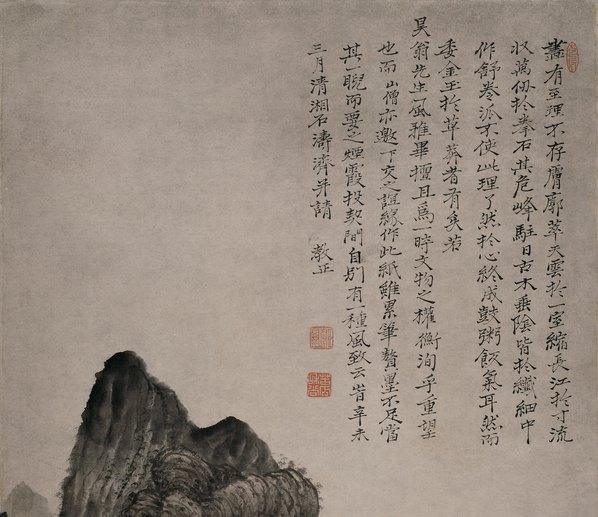 畫有至理不存膚廓萃天雲於一室縮長江於寸流
收萬仞於拳石其危峰駐日古木垂陰皆於纖細中
作舒卷派不使此理了然於心終成鼓粥飯氣耳然而
委金玉於草莽者有矣若
昊翁先生風雅畢擅且為一時文物之權衡洵乎重望
也而山僧亦邀下交之誼緣作此紙雖累筆贅墨不足當
其一睨而要之煙霞投契間自別有一種風致云昔辛未
三月清湘石濤濟并請 教正